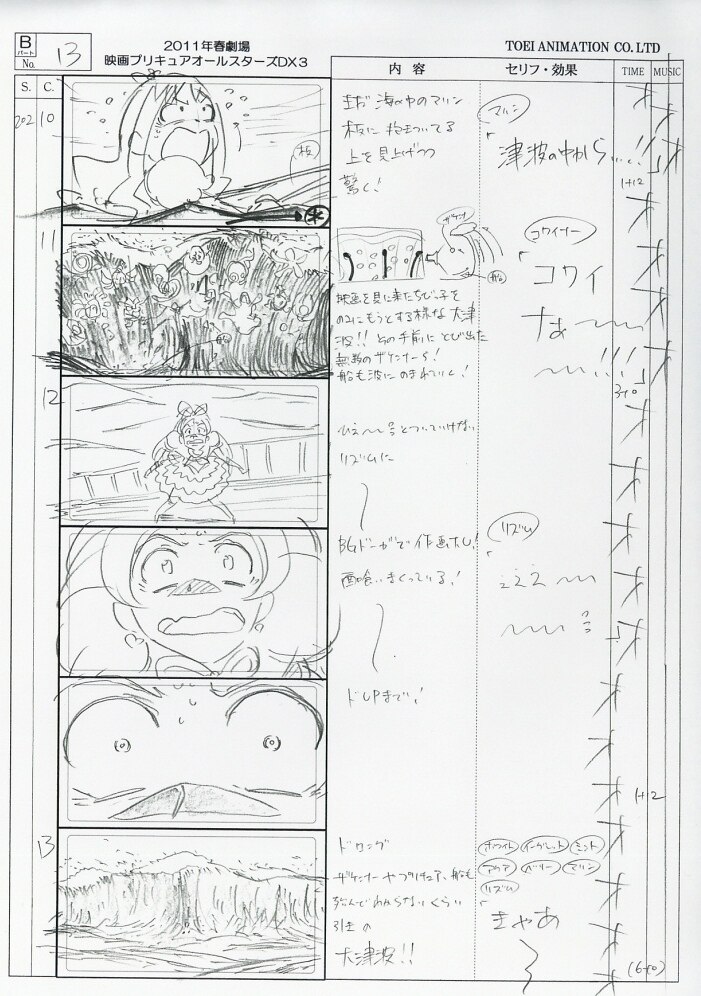 B
パート
No. 13
2011年春劇場
映画プリキュアオールスターズDX3
TOEI ANIMATION CO. LTD
S. C. 内容 セリフ・効果 TIME MUSIC
202 10
まだ 海の中のマリン
板に
上を見上げつつ
驚く!
板
マリン
「津波の中から…!!」
1+12
11
コワイナー
「コワイ
なぁ〜
〜!!!」
3+0
映画を見に来たちび子を
のみこもうとする様な大津
波!! その手前にとび出た
無数のザケンナーら!
船も波にのまれていく!
12
ひえ〜号とついていけない
リズムに
BGドーガで作画ナシ!
面喰いまくっている!
ドUPまで!
リズム
「ええええ〜
1+12
13
ドロング
ザケンナーやプリキュア、船も
どこかわからないくらい
引きの
大津波!!
ホワイト イーグレット ミント
アクア ベリー マリン
リズム
きゃあ
(6+0)